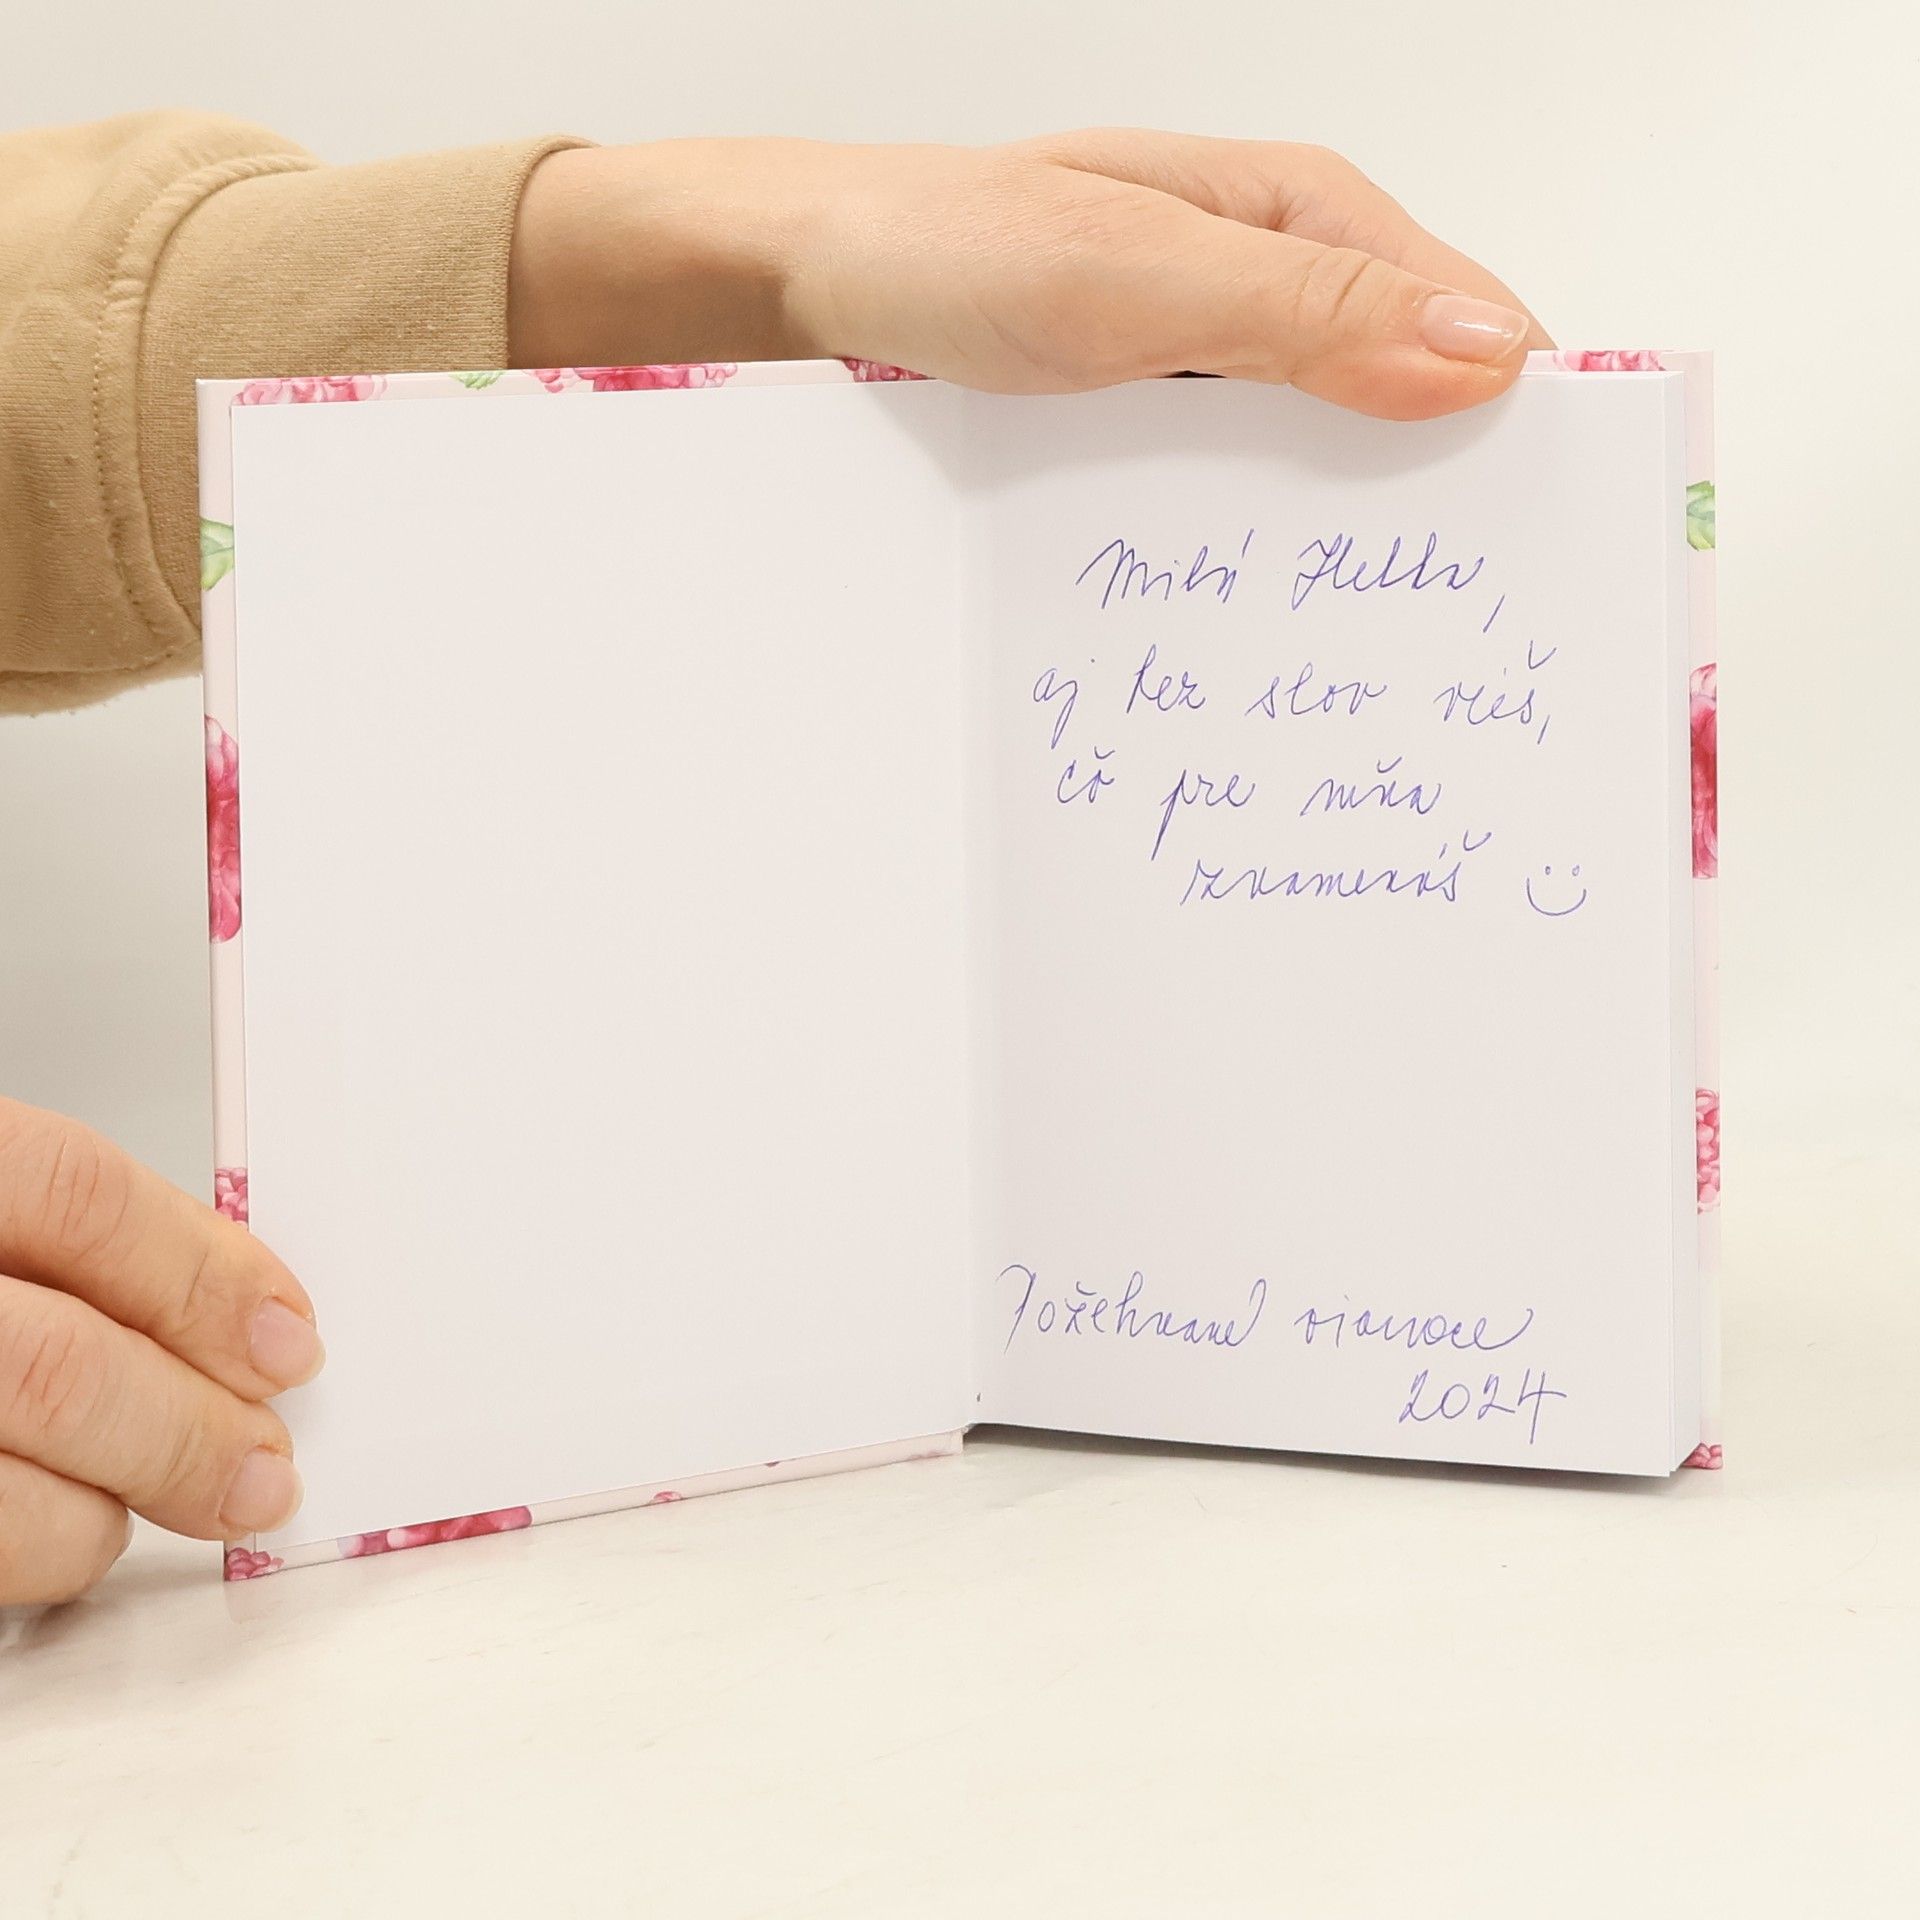 Milá Helka,
aj bez slov vieš,
čo pre mňa
znamenáš
Požehnané vianoce
2024